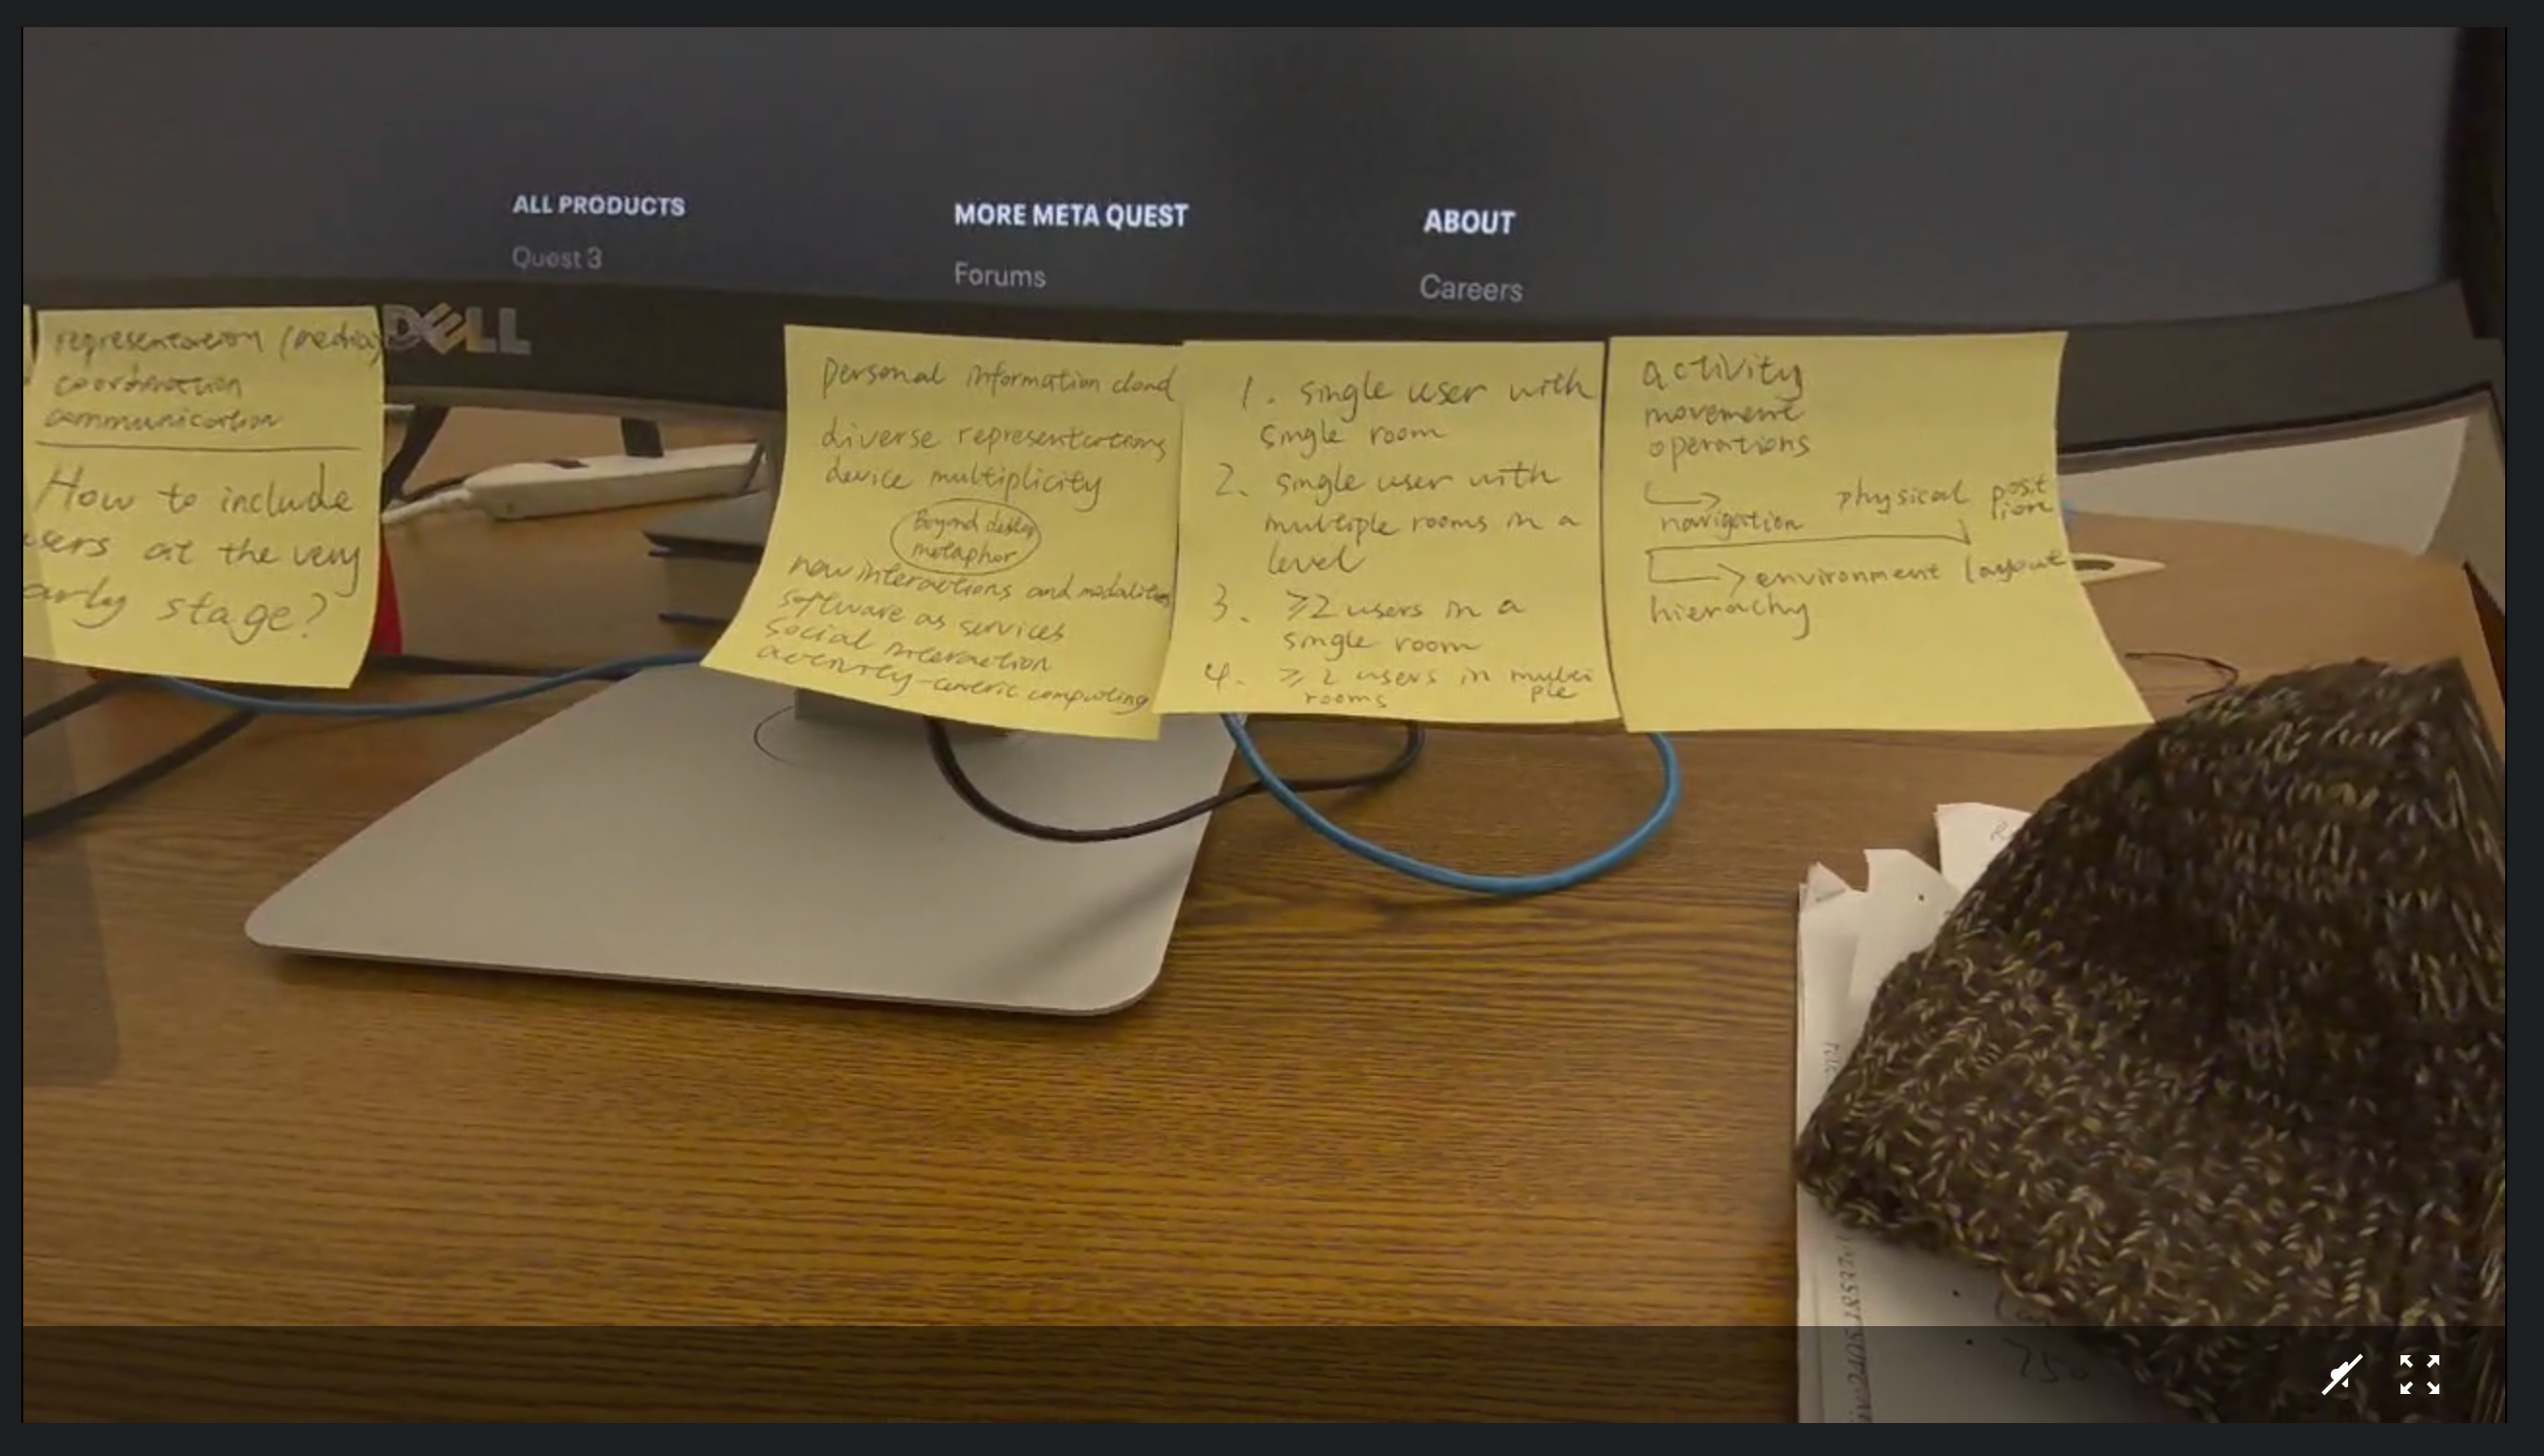 ALL PRODUCTS
Quest 3
MORE META QUEST
Forums
ABOUT
Careers
DELL
representation (media)
coordination
communication
How to include
users at the very
early stage?
personal information cloud
diverse representations
device multiplicity
Beyond desktop
metaphor
new interactions and modalities
software as services
social interaction
activity-centric computing
1. single user with
single room
2. single user with
multiple rooms in a
level
3. ≥2 users in a
single room
4. ≥2 users in multi
ple
rooms
activity
movement
operations
navigation physical posit
ion
environment layout
hierachy